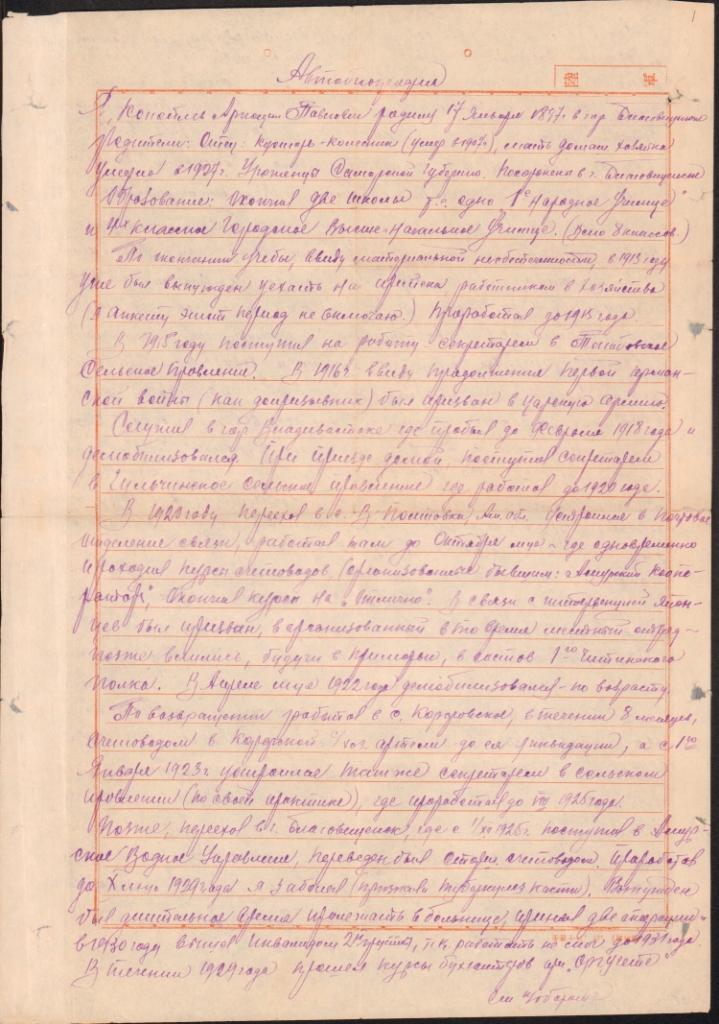 1
Автобиография
Я, Павлович родился 17 Января 1897 г. в гор. Благовещенске
Родители: Отец: кустарь- (умер в 1907), мать домаш. хозяйка
умерла в 1927 г. Уроженцы Самарской Губернии. Похоронена в г. Благовещенске
Образование: Окончил две школы т.е. одно 1е Народное Училище"
и 4х классное Городское Высше-Начальное Училище. (Всего 8 классов.)
По окончании учебы, ввиду материальной необеспеченности, в 1913 году
уже был вынужден уехать на прииска работником в хозяйство
(в анкету этот период не включаю.) Проработал до 1915 года
В 1915 году поступил на работу секретарем в
Сельское Правление. В 1916 г ввиду продолжения первой герман-
ской войны (как допризывник) был призван в царскую армию.
Служил в гор Владивостоке где пробыл до Февраля 1918 года и
демобилизовался. При приезде домой, поступил секретарем
в Гильчинское сельское правление где работал до 1920 года.
В 1920 году переехал в с. В-Полтавка Ам. обл. Устроился в Почтовое
отделение связи, работал там до Октября м-ца - где одновременно
проходил курсы счетоводов, (организованные бывшим: "Амурский Коопе-
ратор", Окончил курсы на "Отлично". В связи с интервенцией Япон-
цев был призван, в организованный в то время местный отряд-
позже влились, будучи в Приморьи, в состав 1го Читинского
полка. В Апреле м-ца 1922 года демобилизовался по возрасту.
По возвращении работал в с. , в течении 8 месяцев,
счетоводом в с/хоз. артели до ея ликвидации, а с 1го
Января 1923 г устроился там же секретарем в сельском
правлении (по своей практике), где проработал до VIII 1925 года.
Позже, переехал в г. Благовещенск, где с 1/XI 1925 г. поступил в Амур-
ское Водное Управление, переведен был старш. счетоводом. Проработав
до X м-ца 1929 года я заболел (признали туберкулез кости). Вынужден
был длительное время пролежать в больнице, принял две операции
в 1930 году вышел инвалидом 2й группы, т.к. работать не смог до 1931 года.
В течении 1929 года прошел курсы бухгалтеров при "Оргучете"
См "оборот"